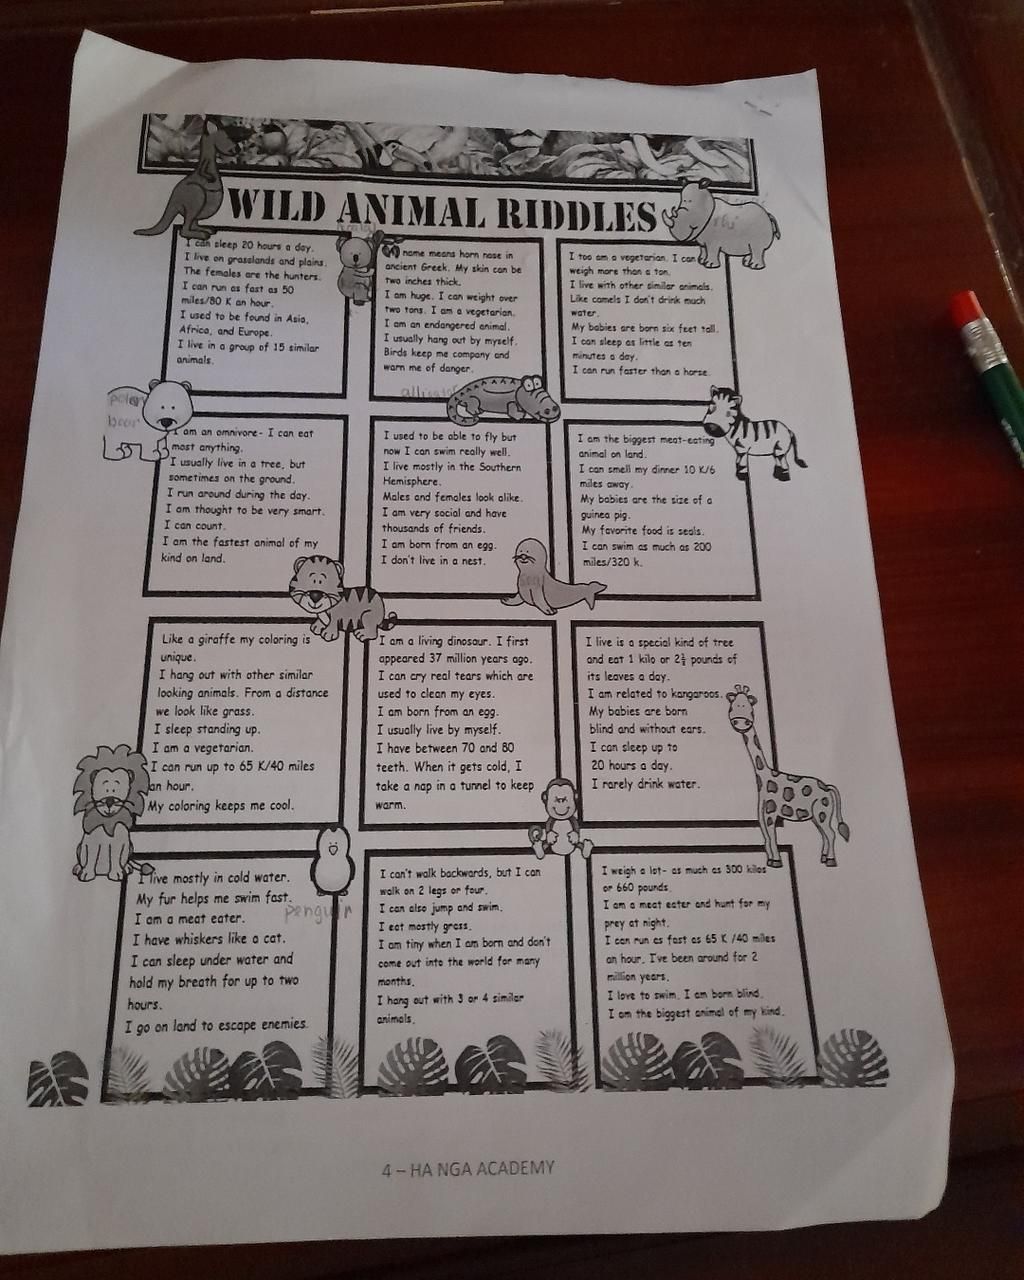 WILD ANIMAL RIDDLES
I can sleep 20 hours a day.
I live on grasslands and plains.
The females are the hunters.
I can run as fast as 50
miles/80 K an hour.
I used to be found in Asia,
Africa, and Europe.
I live in a group of 15 similar
animals.
name means horn nose in
ancient Greek. My skin can be
two inches thick.
I am huge. I can weight over
two tons. I am a vegetarian.
I am an endangered animal.
I usually hang out by myself.
Birds keep me company and
warn me of danger.
I too am a vegetarian. I can
weigh more than a ton.
I live with other similar animals.
Like camels I don't drink much
water.
My babies are born six feet tall.
I can sleep as little as ten
minutes a day.
I can run faster than a horse.
polar
bear
alligator
I am an omnivore- I can eat
most anything.
I usually live in a tree, but
sometimes on the ground.
I run around during the day.
I am thought to be very smart.
I can count.
I am the fastest animal of my
kind on land.
I used to be able to fly but
now I can swim really well.
I live mostly in the Southern
Hemisphere.
Males and females look alike.
I am very social and have
thousands of friends.
I am born from an egg.
I don't live in a nest.
seal
I am the biggest meat-eating
animal on land.
I can smell my dinner 10 K/6
miles away.
My babies are the size of a
guinea pig.
My favorite food is seals.
I can swim as much as 200
miles/320 k.
Like a giraffe my coloring is
unique.
I hang out with other similar
looking animals. From a distance
we look like grass.
I sleep standing up.
I am a vegetarian.
I can run up to 65 K/40 miles
an hour.
My coloring keeps me cool.
I am a living dinosaur. I first
appeared 37 million years ago.
I can cry real tears which are
used to clean my eyes.
I am born from an egg.
I usually live by myself.
I have between 70 and 80
teeth. When it gets cold, I
take a nap in a tunnel to keep
warm.
I live is a special kind of tree
and eat 1 kilo or 2½ pounds of
its leaves a day.
I am related to kangaroos.
My babies are born
blind and without ears.
I can sleep up to
20 hours a day.
I rarely drink water.
I live mostly in cold water.
My fur helps me swim fast.
I am a meat eater.
I have whiskers like a cat.
I can sleep under water and
hold my breath for up to two
hours.
I go on land to escape enemies.
penguin
I can't walk backwards, but I can
walk on 2 legs or four.
I can also jump and swim.
I eat mostly grass.
I am tiny when I am born and don't
come out into the world for many
months.
I hang out with 3 or 4 similar
animals.
I weigh a lot- as much as 300 kilos
or 660 pounds.
I am a meat eater and hunt for my
prey at night.
I can run as fast as 65 K /40 miles
an hour. I've been around for 2
million years.
I love to swim. I am born blind.
I am the biggest animal of my kind.
4 – HA NGA ACADEMY